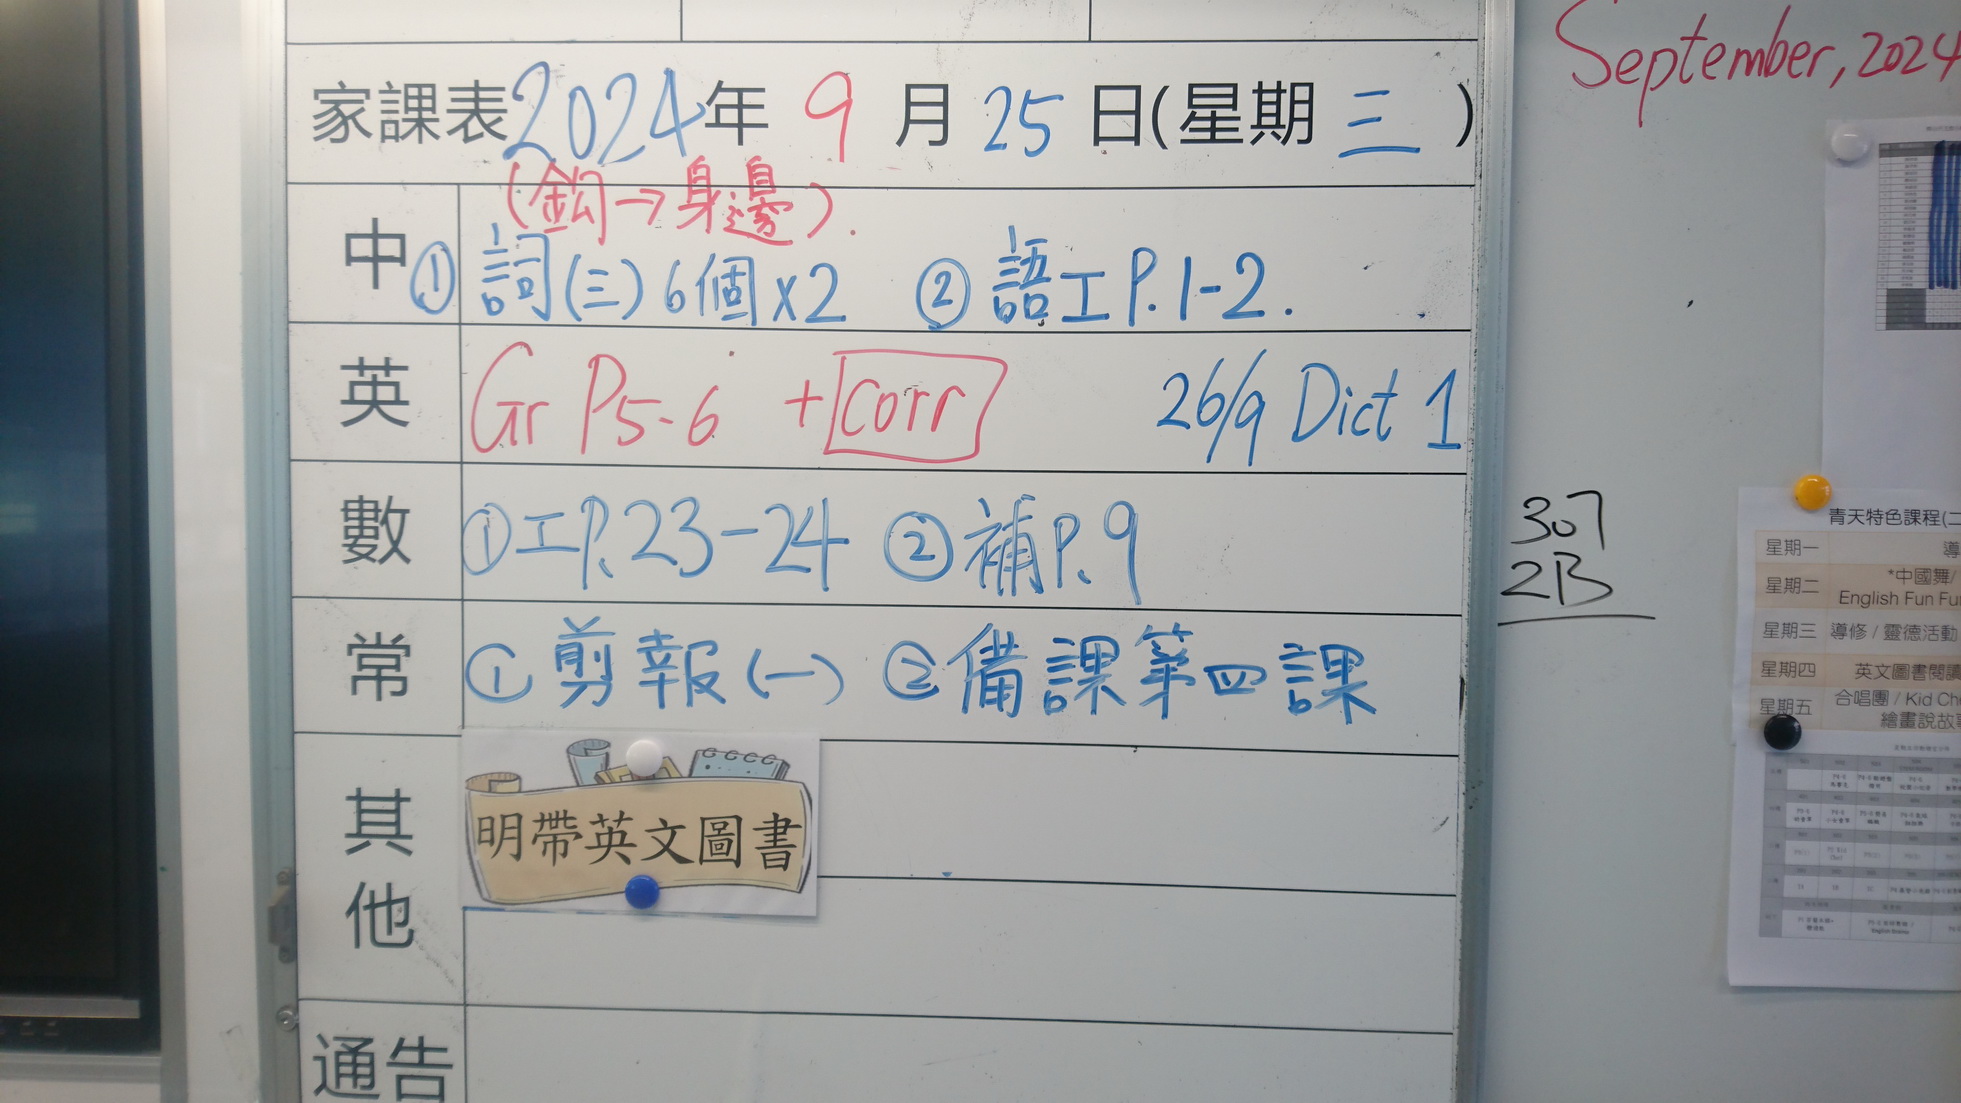 家課表2024年9月25日(星期三)
中
(鈎→身邊).
①詞(三)6個x2 ②語工P.1-2.
英 Gr P5-6 +corr 26/9 Dict 1
數 ①工P.23-24 ②補P.9
常 ①剪報(一) ②備課第四課
其他
明帶英文圖書
通告
September, 2024
307
2B
青天特色課程(二
星期一 導
星期二 *中國舞/
English Fun Fu
星期三 導修 / 靈德活動
星期四 英文圖書閱讀
星期五 合唱團 / Kid Ch
繪畫說故事